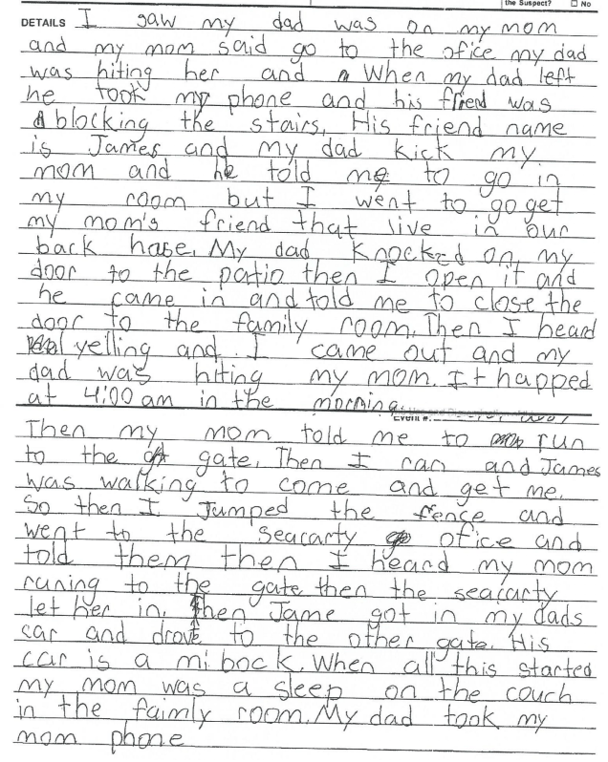 the Suspect? ☐ No
DETAILS I saw my dad was on my mom
and my mom said go to the ofice my dad
was hiting her and When my dad left
he took my phone and his friend was
blocking the stairs, His friend name
is James and my dad kick my
mom and he told me to go in
my room but I went to go get
my mom's friend that live in our
back hase. My dad Knocked on my
door to the patio then I open it and
he came in and told me to close the
door to the family room. Then I heard
yelling and I came out and my
dad was hiting my mom. It happed
at 4:00 am in the morning.
Then my mom told me to run
to the gate. Then I ran and James
was walking to come and get me.
So then I Jumped the fence and
went to the seacarty ofice and
told them then I heard my mom
runing to the gate then the seacarty
let her in. then Jame got in my dads
car and drove to the other gate. His
car is a mi bock. When all this started
my mom was a sleep on the couch
in the faimly room. My dad took my
mom phone